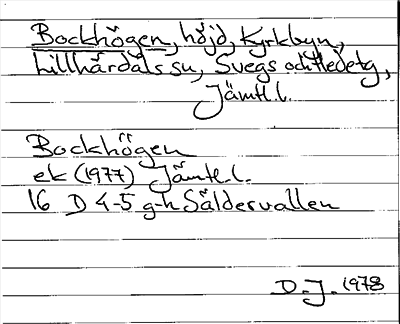 Bockhögen, höjd, Kyrkbyn,
Lillhärdals sn, Svegs och Hede tg,
Jämtl.l.
Bockhögen
ek (1977) Jämtl.l.
16 D 4-5 g-h Säldervallen
D.J. 1978